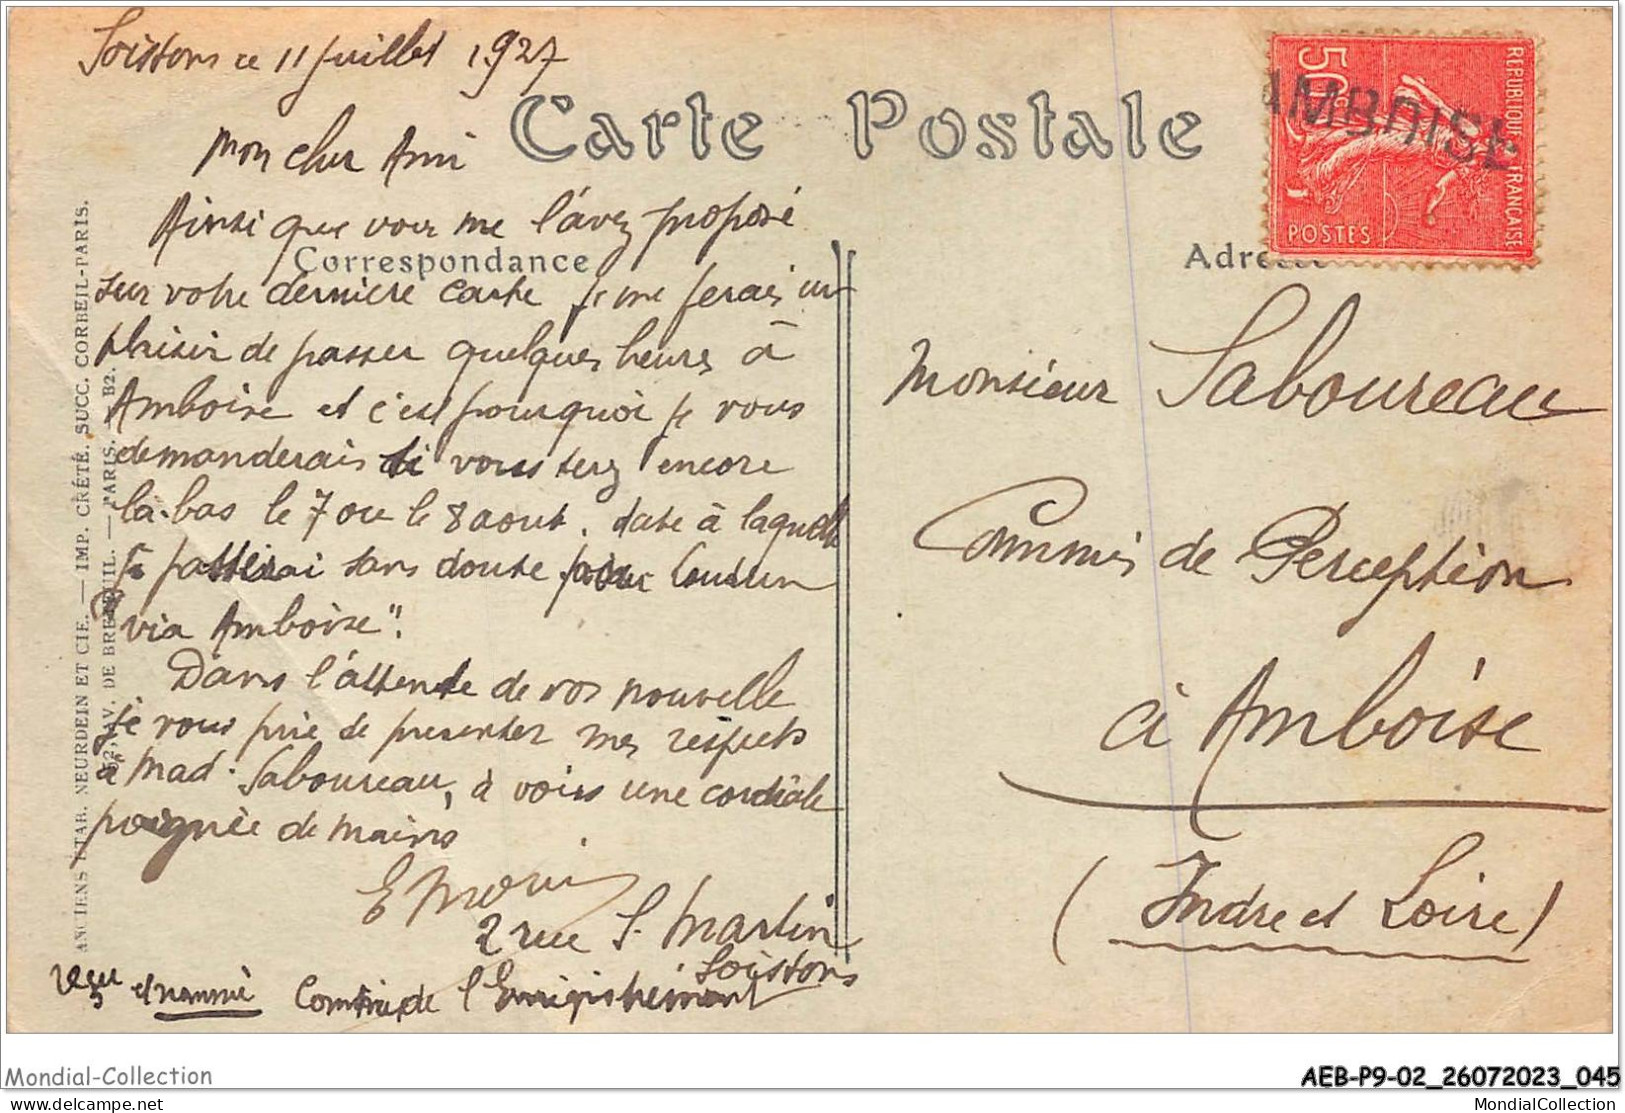 Soissons ce 11 Juillet 1927
Carte Postale
Mon cher Ami
Ainsi que vous me l'avez proposé
Correspondance
sur votre dernière carte je me ferais un
plaisir de passer quelques heures à
Amboise et c'est pourquoi je vous
demanderais si vous serez encore
là-bas le 7 ou le 8 aout. date à laquelle
je passerai sans doute pour Loudun
"via Amboise".
Dans l'attente de vos nouvelle
je vous prie de presenter mes respects
à Mad. Saboureau, à vous une cordiale
poignée de mains
E Morin
2 rue S. Martin
Soissons
et nommé Comtrie de l'Enregistrement
ANCIENS ETAB. NEURDEIN ET CIE. — IMP. CRÉTÉ. SUCC. CORBEIL-PARIS.
52, AV. DE BRETEUIL. — PARIS. — B2.
REPUBLIQUE FRANÇAISE
50c
POSTES
AMBOISE
Adresse
Monsieur Saboureau
Commis de Perception
à Amboise
(Indre et Loire)
Mondial-Collection
AEB-P9-02_26072023_045
www.delcampe.net
MondialCollection